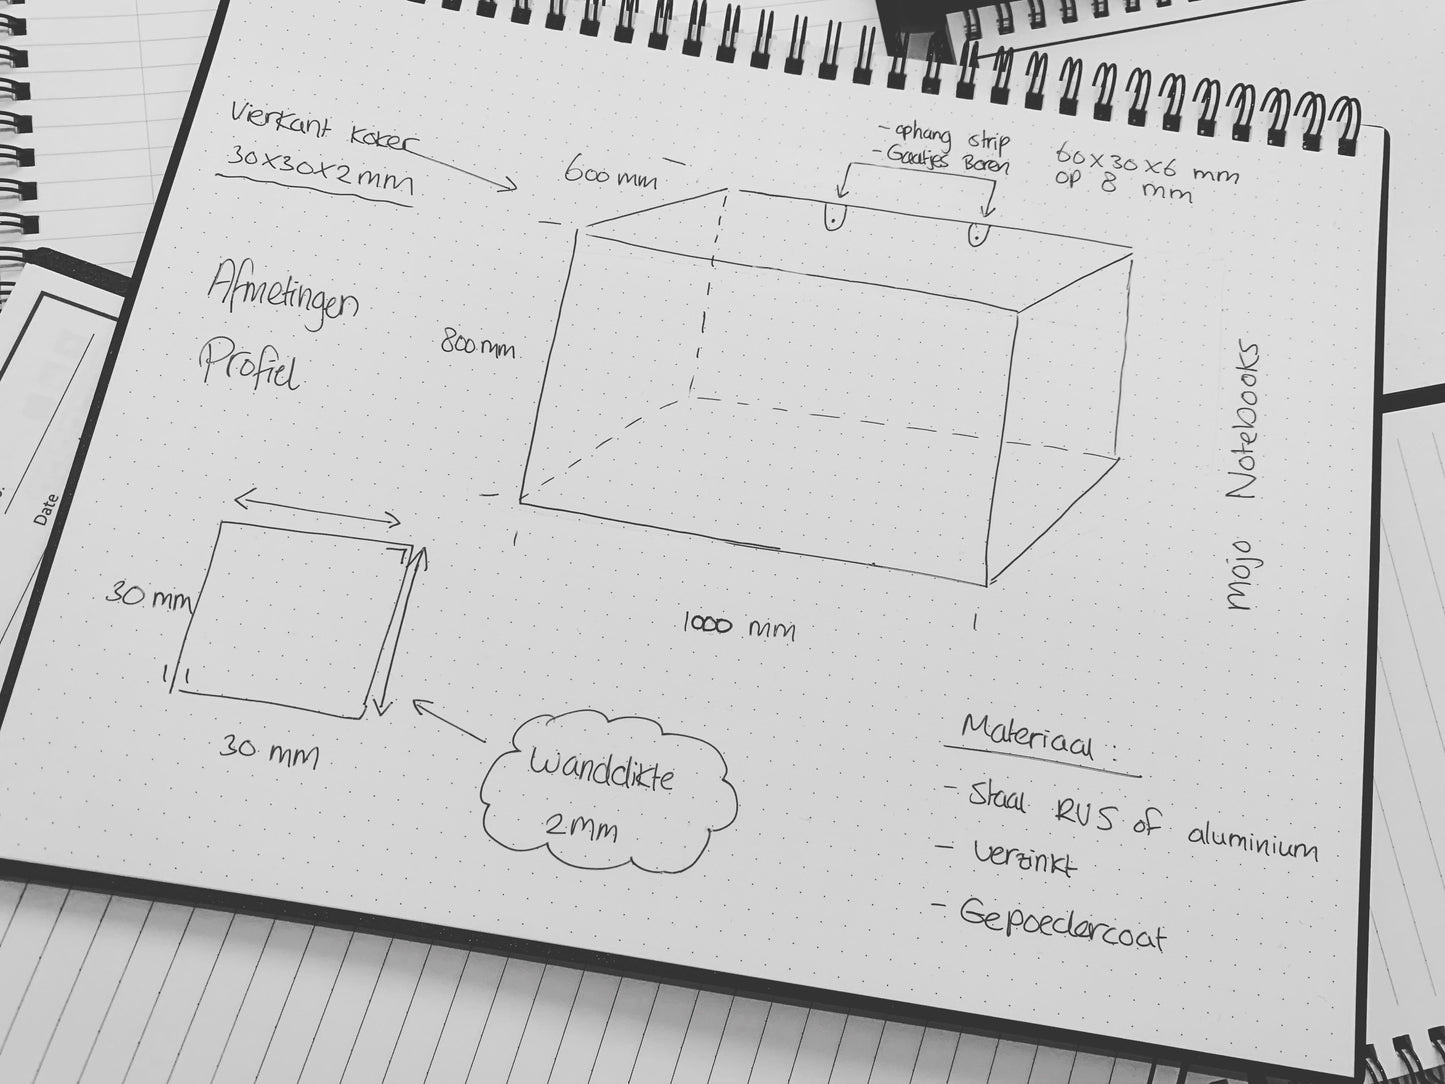 Vierkant koker
30x30x2mm
600 mm
- ophang strip
- Gaatjes Boren
60x30x6 mm
op 8 mm
Afmetingen
Profiel
800mm
Mojo Notebooks
Date
30 mm
30 mm
1000 mm
Wanddikte
2mm
Materiaal:
- Staal RVS of aluminium
- Verzinkt
- Gepoedercoat